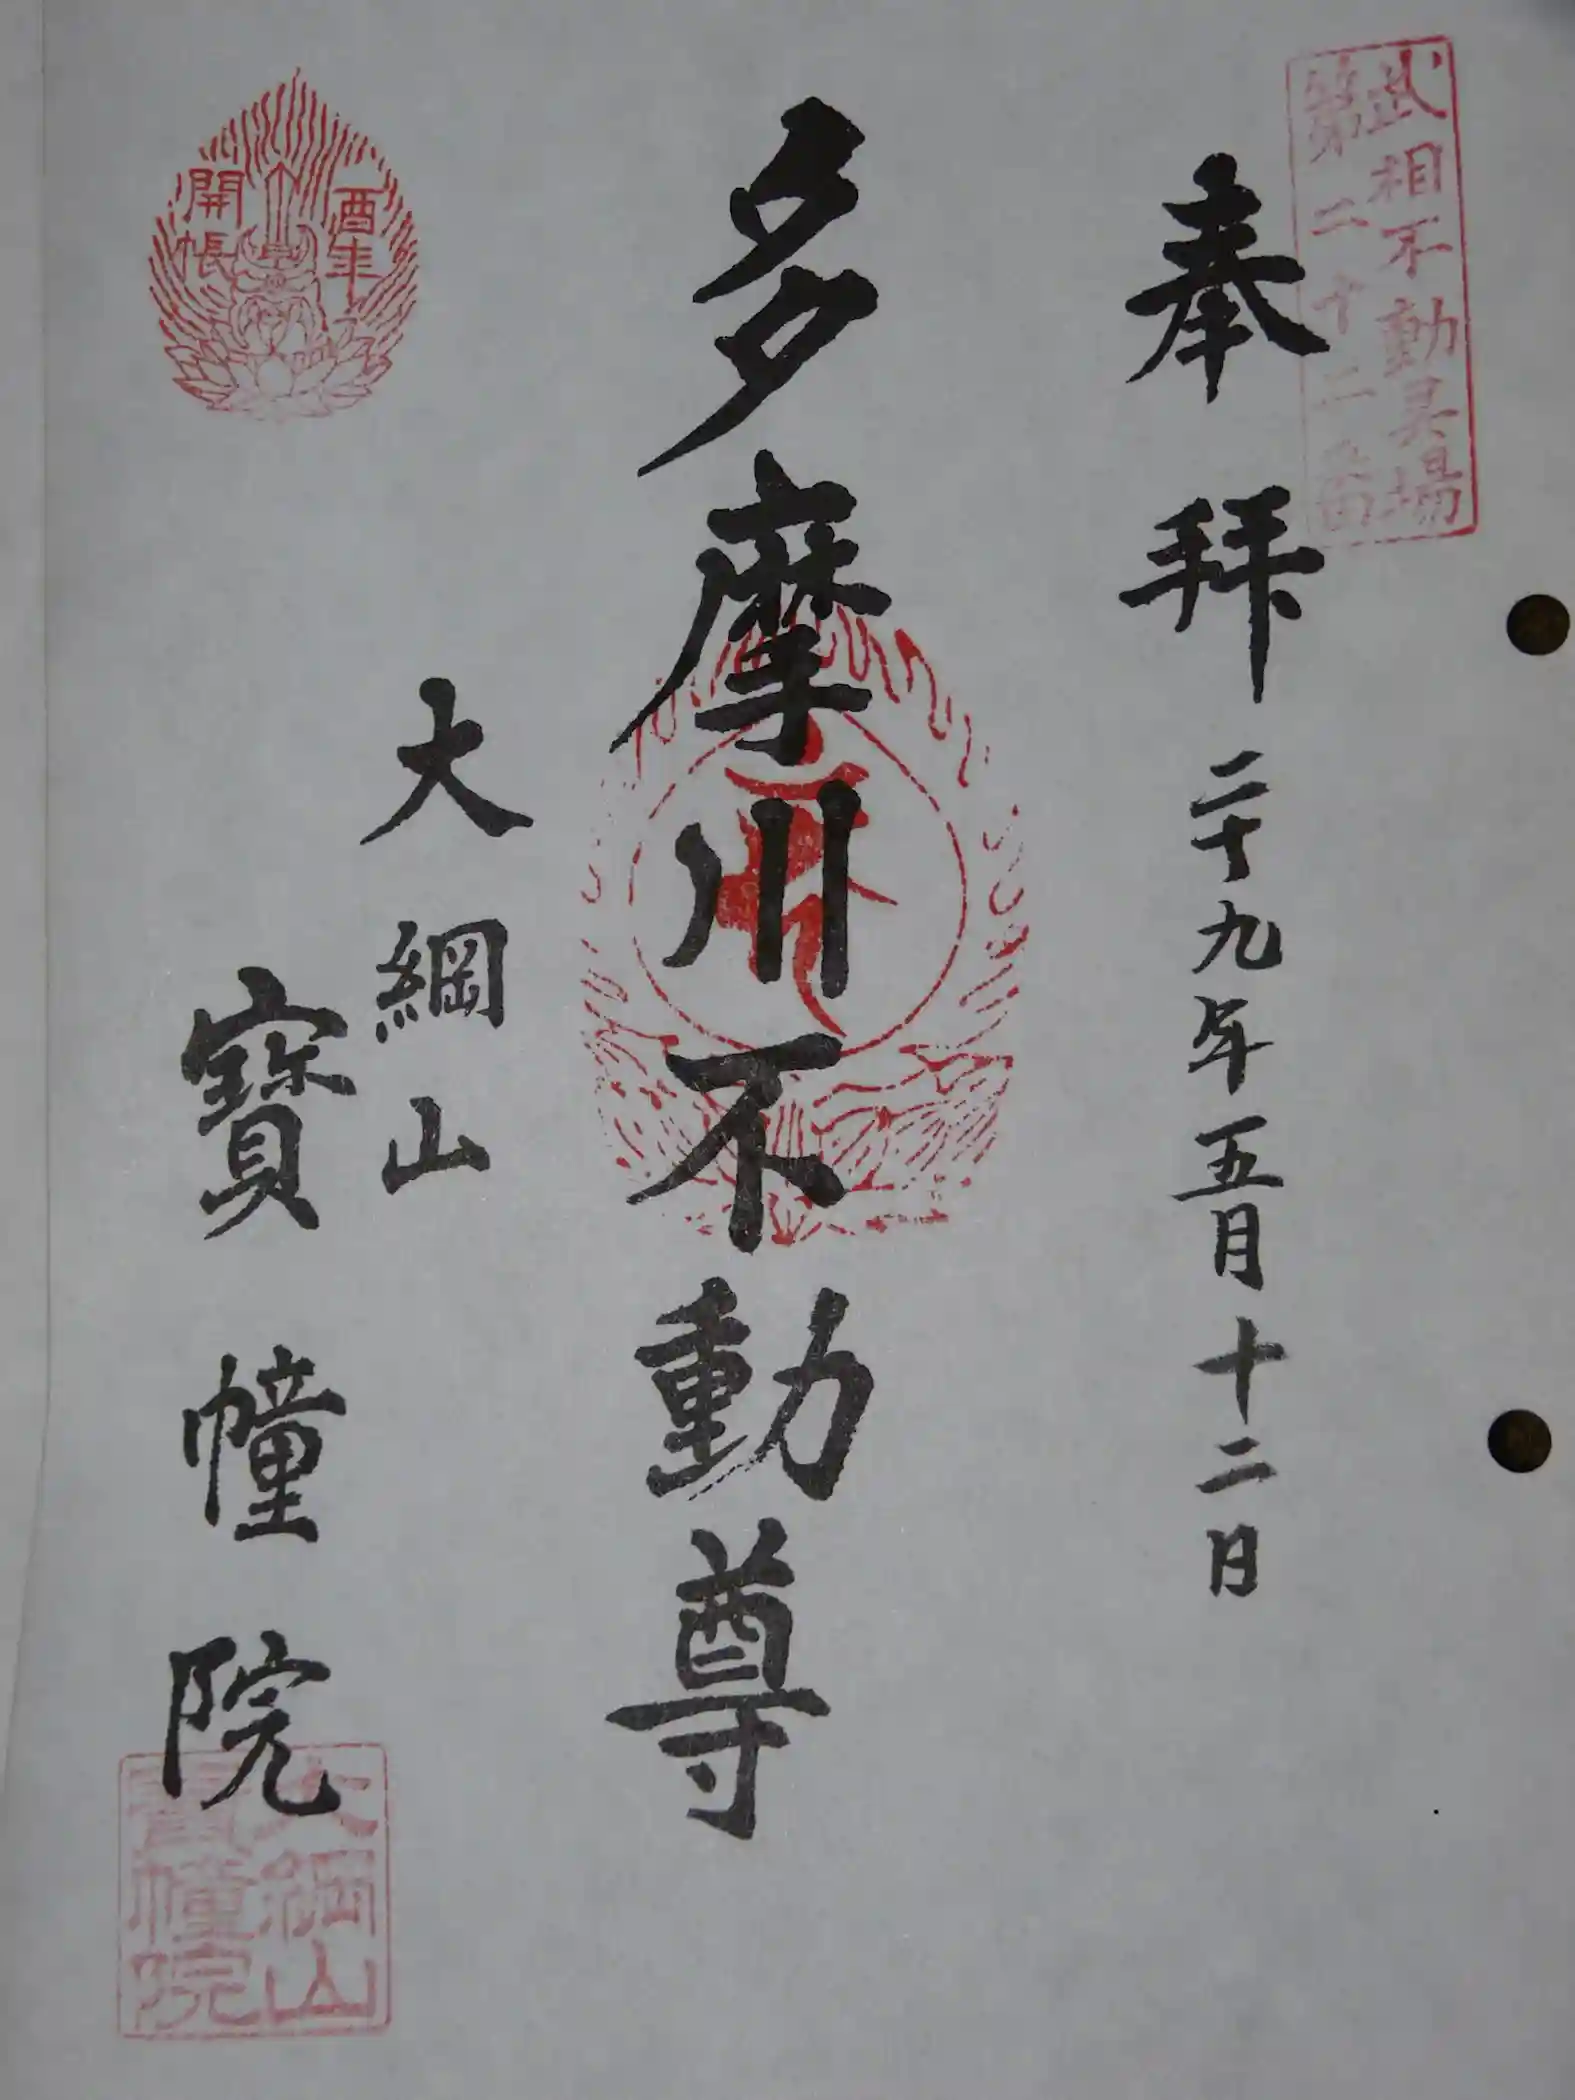 武相不動霊場
第二十二番
奉拝
二十九年五月十二日
多摩川不動尊
大綱山
寶幢院
酉年
開帳
大綱山
寶幢院